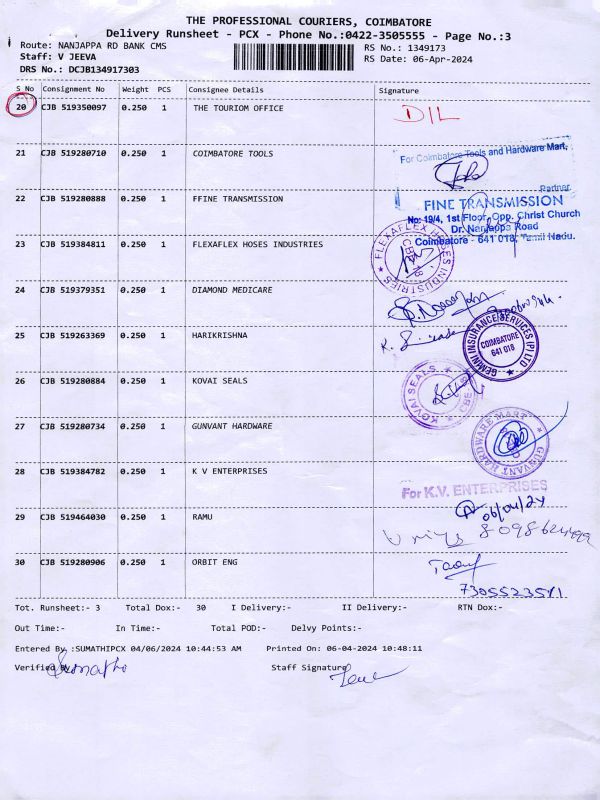 THE PROFESSIONAL COURIERS, COIMBATORE
Delivery Runsheet - PCX - Phone No.:0422-3505555 - Page No.:3
Route: NANJAPPA RD BANK CMS
RS No.: 1349173
Staff: V JEEVA
RS Date: 06-Apr-2024
DRS No.: DCJB134917303
S No Consignment No Weight PCS Consignee Details Signature
20 CJB 519350097 0.250 1 THE TOURIOM OFFICE DIL
21 CJB 519280710 0.250 1 COIMBATORE TOOLS
For Coimbatore Tools and Hardware Mart,
Partner
22 CJB 519280888 0.250 1 FFINE TRANSMISSION
FINE TRANSMISSION
No: 19/4, 1st Floor, Opp. Christ Church
Dr. Nanjappa Road
Coimbatore - 641 018, Tamil Nadu.
23 CJB 519384811 0.250 1 FLEXAFLEX HOSES INDUSTRIES
FLEXAFLEX HOSES INDUSTRIES
24 CJB 519379351 0.250 1 DIAMOND MEDICARE
25 CJB 519263369 0.250 1 HARIKRISHNA
GEMINI INSURANCE SERVICES (P) LTD
COIMBATORE
641 018
26 CJB 519280884 0.250 1 KOVAI SEALS
KOVAI SEALS CBE
27 CJB 519280734 0.250 1 GUNVANT HARDWARE
GUNVANT HARDWARE MART
28 CJB 519384782 0.250 1 K V ENTERPRISES
For K.V. ENTERPRISES
06/04/24
29 CJB 519464030 0.250 1 RAMU
30 CJB 519280906 0.250 1 ORBIT ENG
Tot. Runsheet:- 3 Total Dox:- 30 I Delivery:- II Delivery:- RTN Dox:-
Out Time:- In Time:- Total POD:- Delvy Points:-
Entered By :SUMATHIPCX 04/06/2024 10:44:53 AM Printed On: 06-04-2024 10:48:11
Verified By Staff Signature